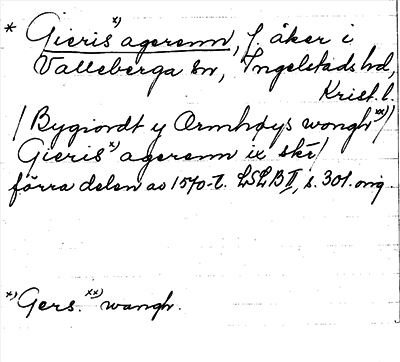 * Gieris x) agerenn, f. åker i
Valleberga sn, Ingelstads hd,
Krist. l.
/Bygiordt y Ormhøys wongh xx)/
Gieris x) agerenn ix skr/
förra delen av 1570-t. LSLB II, s. 301. orig.
x) Gers. xx) wangh.